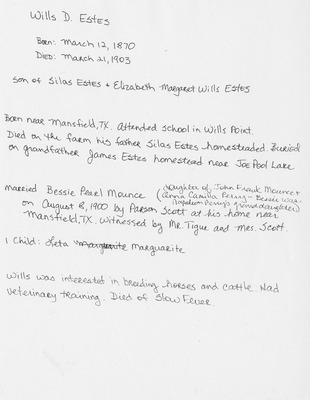 Wills D. Estes
Born: March 12, 1870
Died: March 21, 1903
Son of Silas Estes + Elizabeth Margaret Wills Estes
Born near Mansfield, TX. Attended school in Wills Point.
Died on the farm his father Silas Estes homesteaded. Buried
on grandfather James Estes homestead near Joe Pool Lake
Married Bessie Pearl Mounce (daughter of John Frank Mounce +
Anna Camilla Perry - Bessie was
Napoleon Perry's granddaughter)
on August 8, 1900 by Parson Scott at his home near
Mansfield, TX. Witnessed by Mr. Tigue and Mrs. Scott.
1 Child: Leta Marguarite
Wills was interested in breeding horses and cattle. Had
veterinary training. Died of Slow Fever.